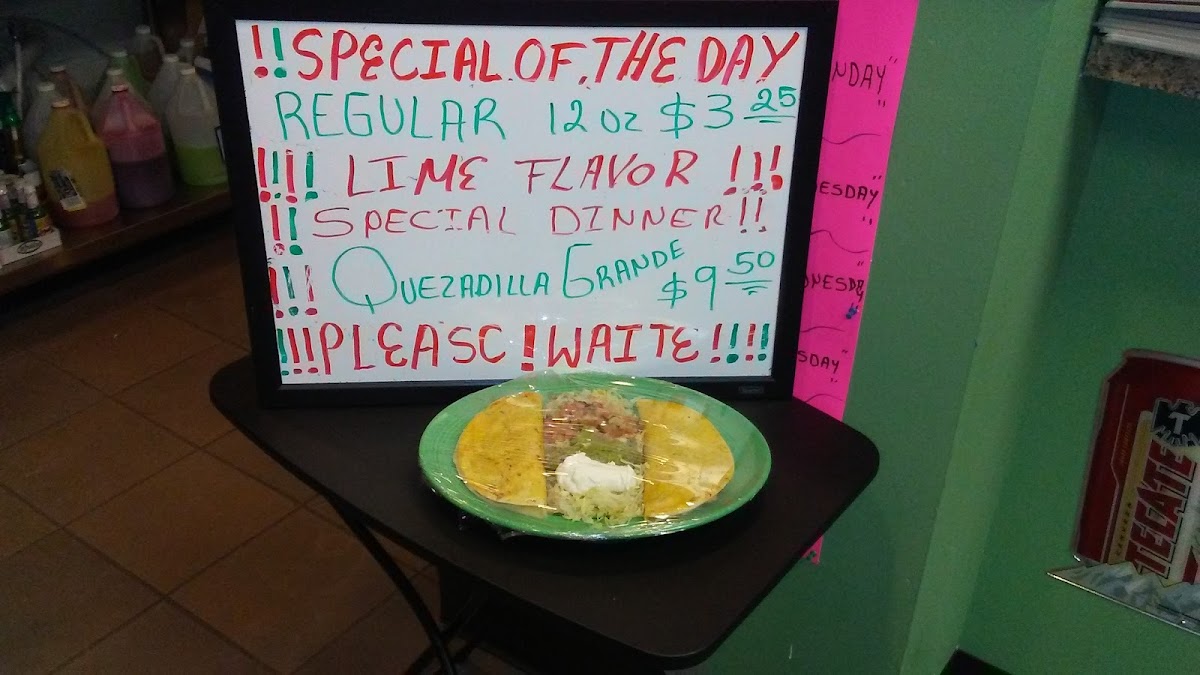 !!SPECIAL OF.THE DAY
REGULAR 12 oz $3 25
!!!! LIME FLAVOR !!!
!! SPECIAL DINNER!!
!!! QUEZADILLA GRANDE $9 50
!!!PLEASC!WAITE!!!!
NDAY"
ESDAY
"
NESDY
SDAY"
TECATE